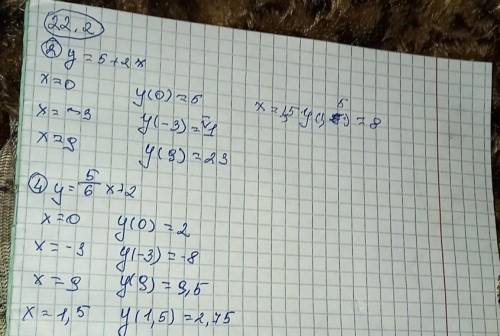 22.2
② y = 5+2x
x=0 y(0)=5
x=-3 y(-3)=-1
x=9 y(9)=23
x=1,5 y(1,5)=8
④ y=5/6 x+2
x=0 y(0)=2
x=-3 y(-3)=-8
x=9 y(9)=9,5
x=1,5 y(1,5)=2,75